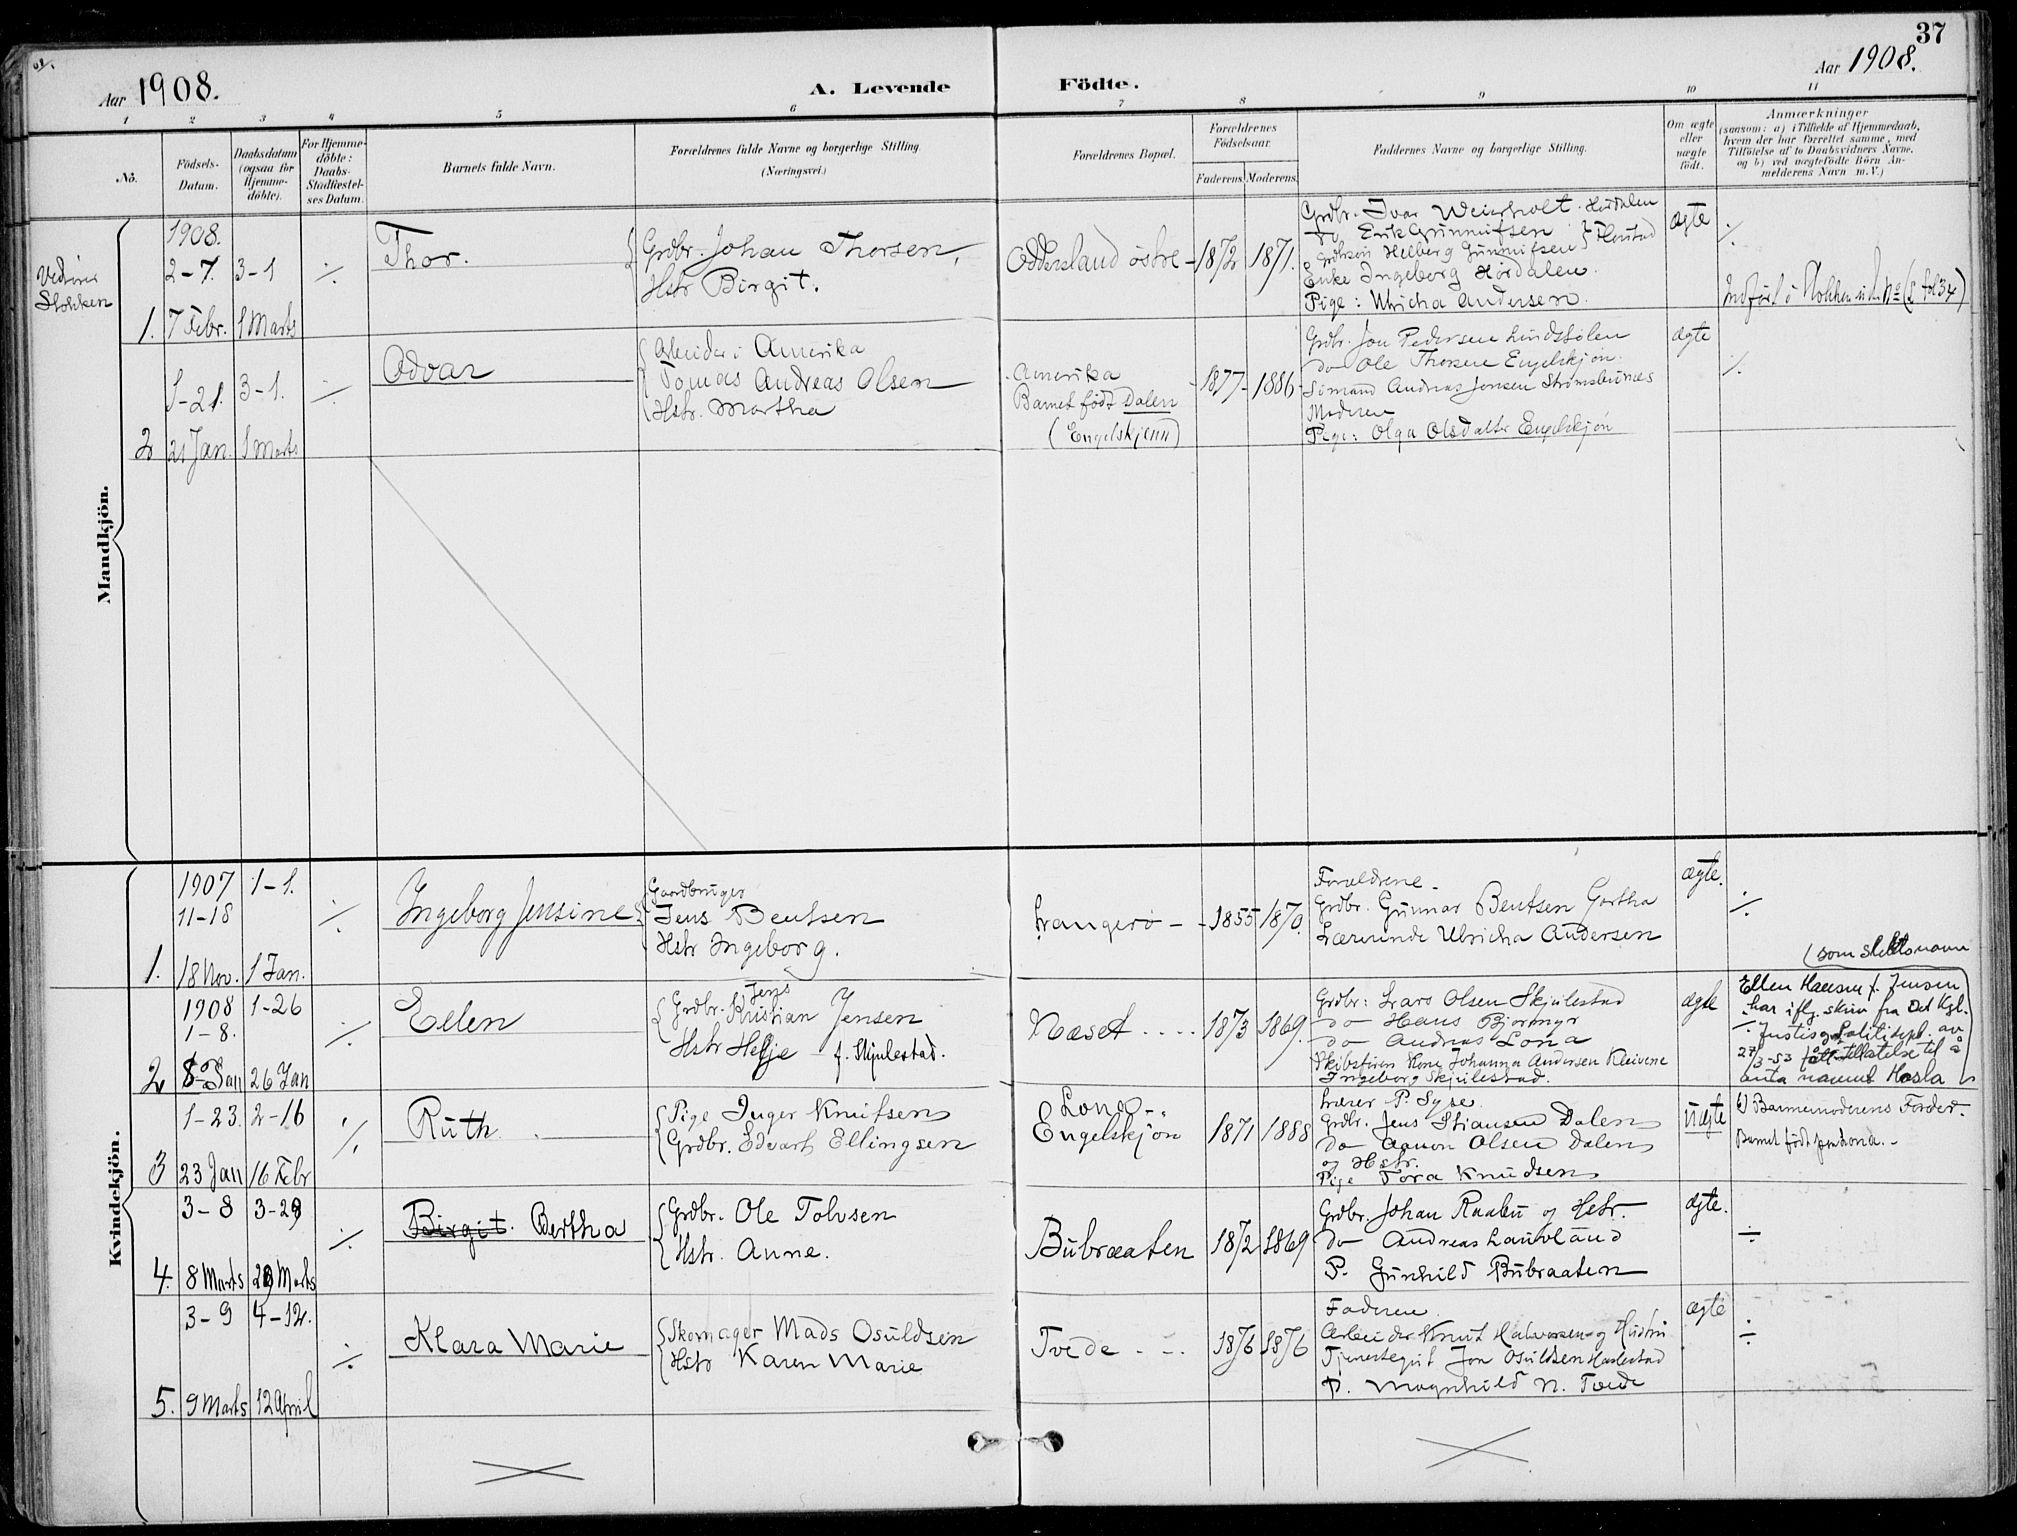 37
Aar 1908.
A. Levende Födte.
Aar 1908.
1 2 3 4 5 6 7 8 9 10 11
No.
Födsels-Datum.
Daabsdatum (ogsaa for Hjemme-döbte).
For Hjemme-döbte: Daabs-Stadfæstel-ses Datum.
Barnets fulde Navn.
Forældrenes fulde Navne og borgerlige Stilling.
(Næringsvei.)
Forældrenes Bopæl.
Forældrenes Födselsaar.
Faderens. Moderens.
Faddernes Navne og borgerlige Stilling.
Om ægte eller uægte födt.
Anmærkninger
(saasom: a) i Tilfælde af Hjemmedaab,
hvem der har forrettet samme, med
Tilföielse af to Daabsvidners Navne,
og b) ved uægtefödte Börn An-
melderens Navn m. V.)
Mandkjön.
Stokken
1908.
2-7. 3-1
1. 7 Febr. 1 Marts
Thor.
Grdbr. Johan Thorsen,
Hstr Birgit.
Oddersland östre - 1872 1871.
Grdbr. Ivar Weierholt. Hördalen
do Erik Gunnufsen
Helberg Gunnufsen
Enke Ingeborg Hördalen.
Pige: Ulricha Andersen.
ægte
1-21. 3-1.
2 21 Jan. 1 Marts
Odvar
Arbeider i Amerika
Tomas Andreas Olsen
Hstr. Martha
Amerika
Barnet födt Dalen
(Engelskjønn)
1877- 1886
Grdbr. Jon Pedersen Lindstölen
do Ole Thorsen Engelskjøn.
Sömand Andreas Jensen Strömsbunæs
Moderen
Pige: Olga Olsdatter Engelskjøn
ægte
Kvindekjön.
1907 1-1.
11-18
1. 18 Nov. 1 Jan.
Ingeborg Jensine
Gaardbruger
Jens Bentsen
Hstr Ingeborg.
Langerö - 1855 1870.
Forældrene.
Grdbr. Gunnar Bentsen Gortha
Lærerinde Ulricha Andersen
ægte.
(som slektsnavn
1908 1-26
1-8.
2 8 Jan 26 Jan
Ellen
Jens
Grdbr. Kristian Jensen
Hstr Helje f. Skjulestad.
Næset 1873 1869.
Grdbr: Lars Olsen Skjulestad
do Hans Bjormyr
do Andreas Lona
Skibsförer Kone Johanna Andersen Kleivene
Ingeborg Skjulestad.
ægte
Ellen Hansen f. Jensen
har iflg. skriv fra Det Kgl.
Justis og Politidept. av
27/3-53 fått tillatelse til å
anta navnet Hasla
1-23. 2-16
3 23 Jan 16 Febr
Ruth.
Pige Inger Knutsen
Grdbr. Edvart Ellingsen
Lona
Engelskjøn 1871 1888
Lærer P. Syse
Grdbr. Jens Stiansen Dalen
do Aanon Olsen Dalen
og Hstr.
Pige Tora Knudsen
uægte
Barnemoderens Forder.
Barnet födt paa Lona.
3-8 3-29
4. 8 Marts 29 Marts
Birgit. Bertha
Grdbr. Ole Tolvsen
Hstr. Anne.
Bubraaten 1872 1869
Grdbr. Johan Raabu og Hstr.
do Andreas Lauvland
P. Gunhild Bubraaten
ægte.
3-9 4-12.
5. 9 Marts 12 April
Klara Marie
Skomager Mads Osuldsen
Hstr Karen Marie
Tvede 1876 1876
Faderen.
Arbeider Knut Halvorsen og Hustru
Tjenestegut Jon Osuldsen Haslestad
P. Magnhild N. Tvede
ægte